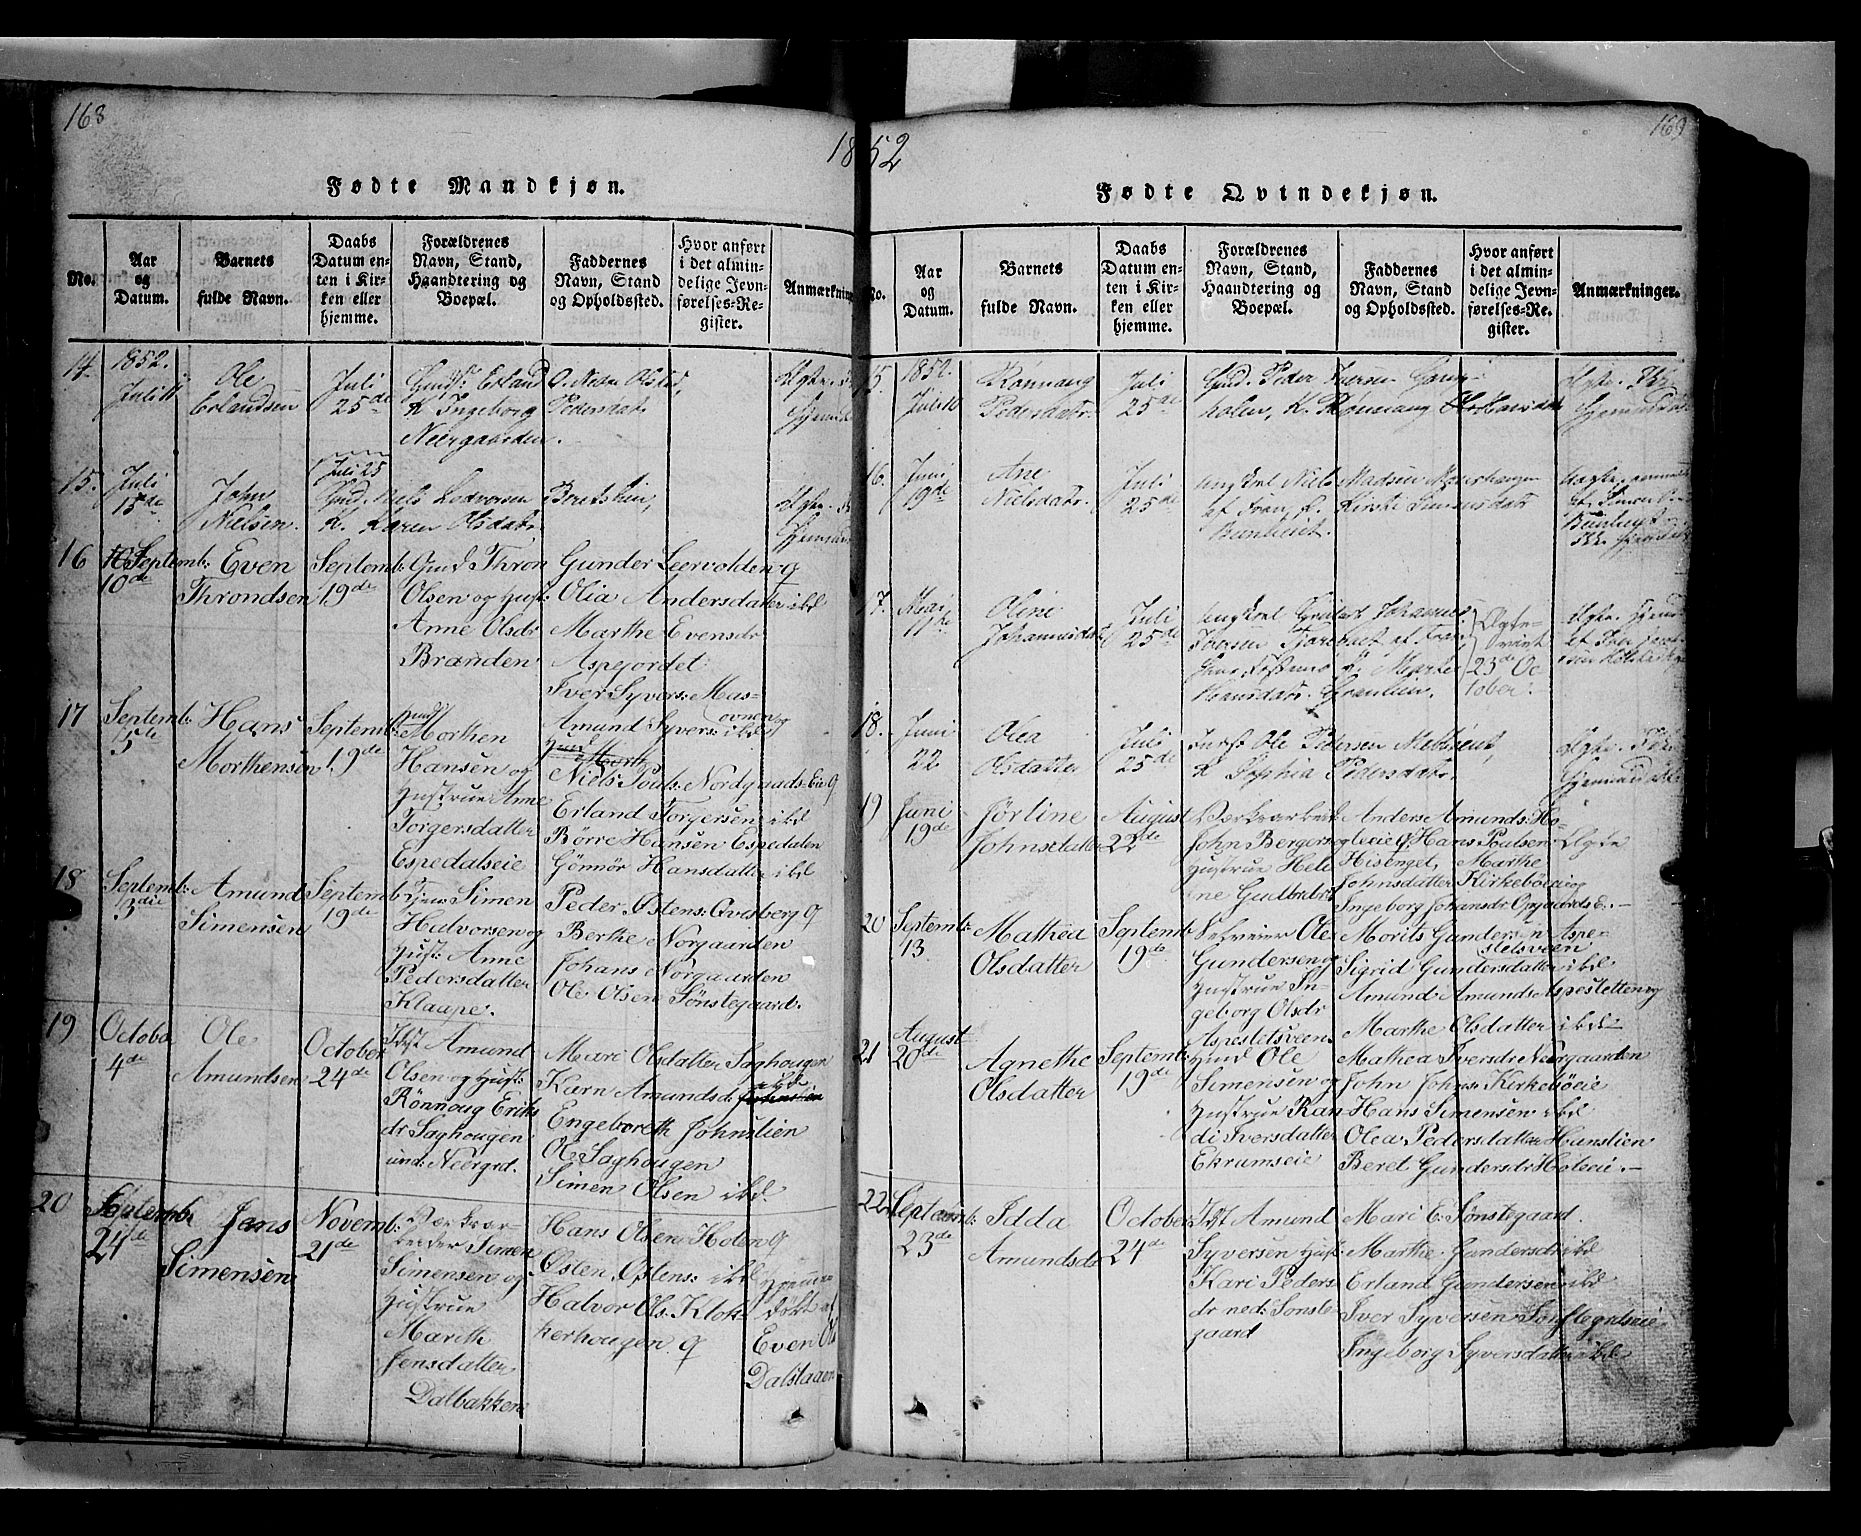 168
1852
169
Fødte Mandkjøn.
No.
Aar
og
Datum.
Barnets
fulde Navn.
Daabs
Datum en-
ten i Kir-
ken eller
hjemme.
Forældrenes
Navn, Stand,
Haandtering og
Boepæl.
Faddernes
Navn, Stand
og Opholdssted.
Hvor anført
i det almin-
delige Jevn-
førelses-Re-
gister.
Anmærkning
14.
1852.
Juli 11
Ole
Erlandsen
Juli
25de
Gmd. Erland O. Nedre Olstad,
K. Ingeborg Pedersdat.
Neergaarden.
15.
Juli
15de
John
Nielsen.
Juli 25
Gmd. Niels
K. Karen Olsdatr
16
Septemb:
10de
Even
Throndsen
Septemb:
19de
Gmd Thron
Olsen og Hust:
Anne Olsdr
Branden
Gunder Leervolden g
Olia Andersdatter ikd
Marthe Evensdr
Aspejordet
Iver Syvers: Mas-
ovnen g
17
Septemb:
5te
Hans
Morthensen
Septemb:
19de
Gmd
Morthen
Hansen og
Hustrue Anne
Torgersdatter
Espedalseie
Amund Syvers: ikd
Niels Pouls: Nordgaards Eie g
Erland Torgersen ikd
Børre Hansen Espedalen
Gønnør Hansdatter ikd
18
Septemb:
3die
Amund
Simensen
Septemb:
19de
Tjen: Simen
Halvorsen og
Hust: Anne
Pedersdatter
Klaape.
Peder Østens: Qvesberg g
Berthe Norgaarden
Johans Norgaarden
Ole Olsen Sønstegaard.
19
October
4de
Ole
Amundsen
October
24de
Idst Amund
Olsen og Hust:
Rønnoug Eriks
dr Saghougen
und: Neergrd.
Mari Olsdatter Saghougen
Karn Amundsd: ikd
Engeboreth Johnslien
Ole Saghougen
Simen Olsen ikd
20
Septemb:
24de
Jens
Simensen
Novemb:
21de
Værkar-
beider Simen
Simensen og
Hustrue
Marith
Jensdatter
Dalbakken
Hans Olsen Holen g
Østen Østens: ikd
Halvor Ols: Klok-
kerhougen g
Hjemme
døbt af
Even Ols
Dalslaaen
Fødte Qvindekjøn.
No.
Aar
og
Datum.
Barnets
fulde Navn.
Daabs
Datum en-
ten i Kir-
ken eller
hjemme.
Forældrenes
Navn, Stand,
Haandtering og
Boepæl.
Faddernes
Navn, Stand
og Opholdssted.
Hvor anført
i det almin-
delige Jevn-
førelses-Re-
gister.
Anmærkninger.
15.
1852.
Juli 10
Rønnaug
Pedersdatr.
Juli
25de
Gmd. Peder Iversen
K. Rønnaug
16.
Juni
19de
Ane
Nielsdatr.
Juli
25de
Ungkarl Niels Madsen
af Fron, f. Kirsti Simensdatr
17.
Mai
11te
Oline
Johannesdatr
Juli
25de
Iversen
Ægte-
viet
23de Oc-
tober.
18.
Juni
22
Olea
Olsdatter
Juli
25de
Ole Pedersen
K Sophia Pedersdatr.
19
Juni
19de
Jørline
Johnsdatter
August
22de
Værkarbeid
John Berger
Hustrue Hele
ne Gulbrds:
Anders Amunds: Ho-
leie g Hans Poulsen
Hisenget, Marthe
Johnsdatter Kirkebøeie
Ingeborg Johansdr Opgaards E.
Ægte
20
Septemb:
13
Mathea
Olsdatter
Septemb:
19de
Selveier Ole
Gundersen og
Hustrue In-
geborg Olsdr
Aspestetsveen
Morits Gundersen Aspe-
stetsveen
Sigrid Gundersdatter ikd
Amund Amunds: Aspestetten g
Marthe Olsdatter ikd
21
August
20de
Agnethe
Olsdatter
Septemb:
19de
Hmd Ole
Simensen og
Hustrue Ran-
di Iversdatter
Ekrumseie
Mathea Iversdr Neergaarden
John Johns: Kirkebøeie
Hans Simensen ikd
Olea Pedersdatter Hanslien
Beret Gundersdr Holeie.
22
Septemb:
23de
Idda
Amundsdr
October
24de
Idst Amund
Syversen Hust
Kari Peders-
dr ned: Sønste-
gaard
Mari E. Sønstegaard.
Marthe Gundersdr ikd
Erland Gundersen ikd
Iver Syversen Sønstegrdseie
Ingeborg Syversdatter ikd